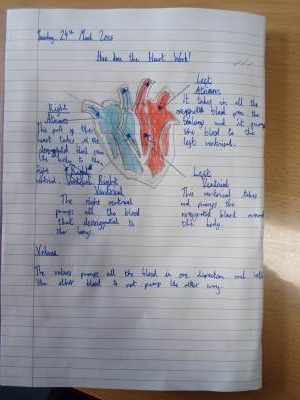 Tuesday 24th March 2020
How does the Heart Work?
Right
Atrium
The part of the
heart takes in the
deoxygated
the body to then
right
ventrical.
Right
Ventrical
The right ventrical
pumps all the blood
that deoxygated to
the lungs.
Left
Atrium
It takes in all the
oxygated blood from the
lungs and it pumps
the blood to the
left ventrical.
Left
Ventrical
This ventrical takes
and pumps the
oxygated blood around
the body.
Valves
The valves pumps all the blood in one direction and lets
the other blood to not pump the other way.